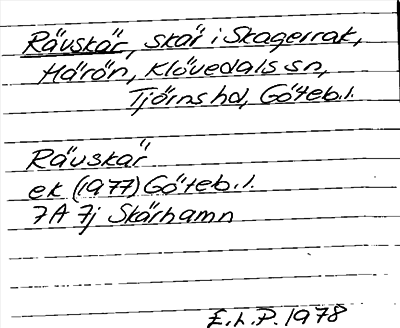 Rävskär, skär i Skagerrak,
Härön, Klövedals sn,
Tjörns hd, Göteb. l.
Rävskär
ek (1977) Göteb. l.
7A 7j Skärhamn
E.L.P. 1978